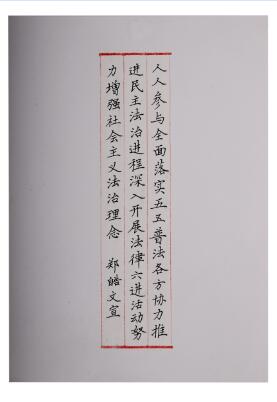 人人参与全面落实五五普法各方协力推
进民主法治进程深入开展法律六进活动努
力增强社会主义法治理念 郑皓文宣